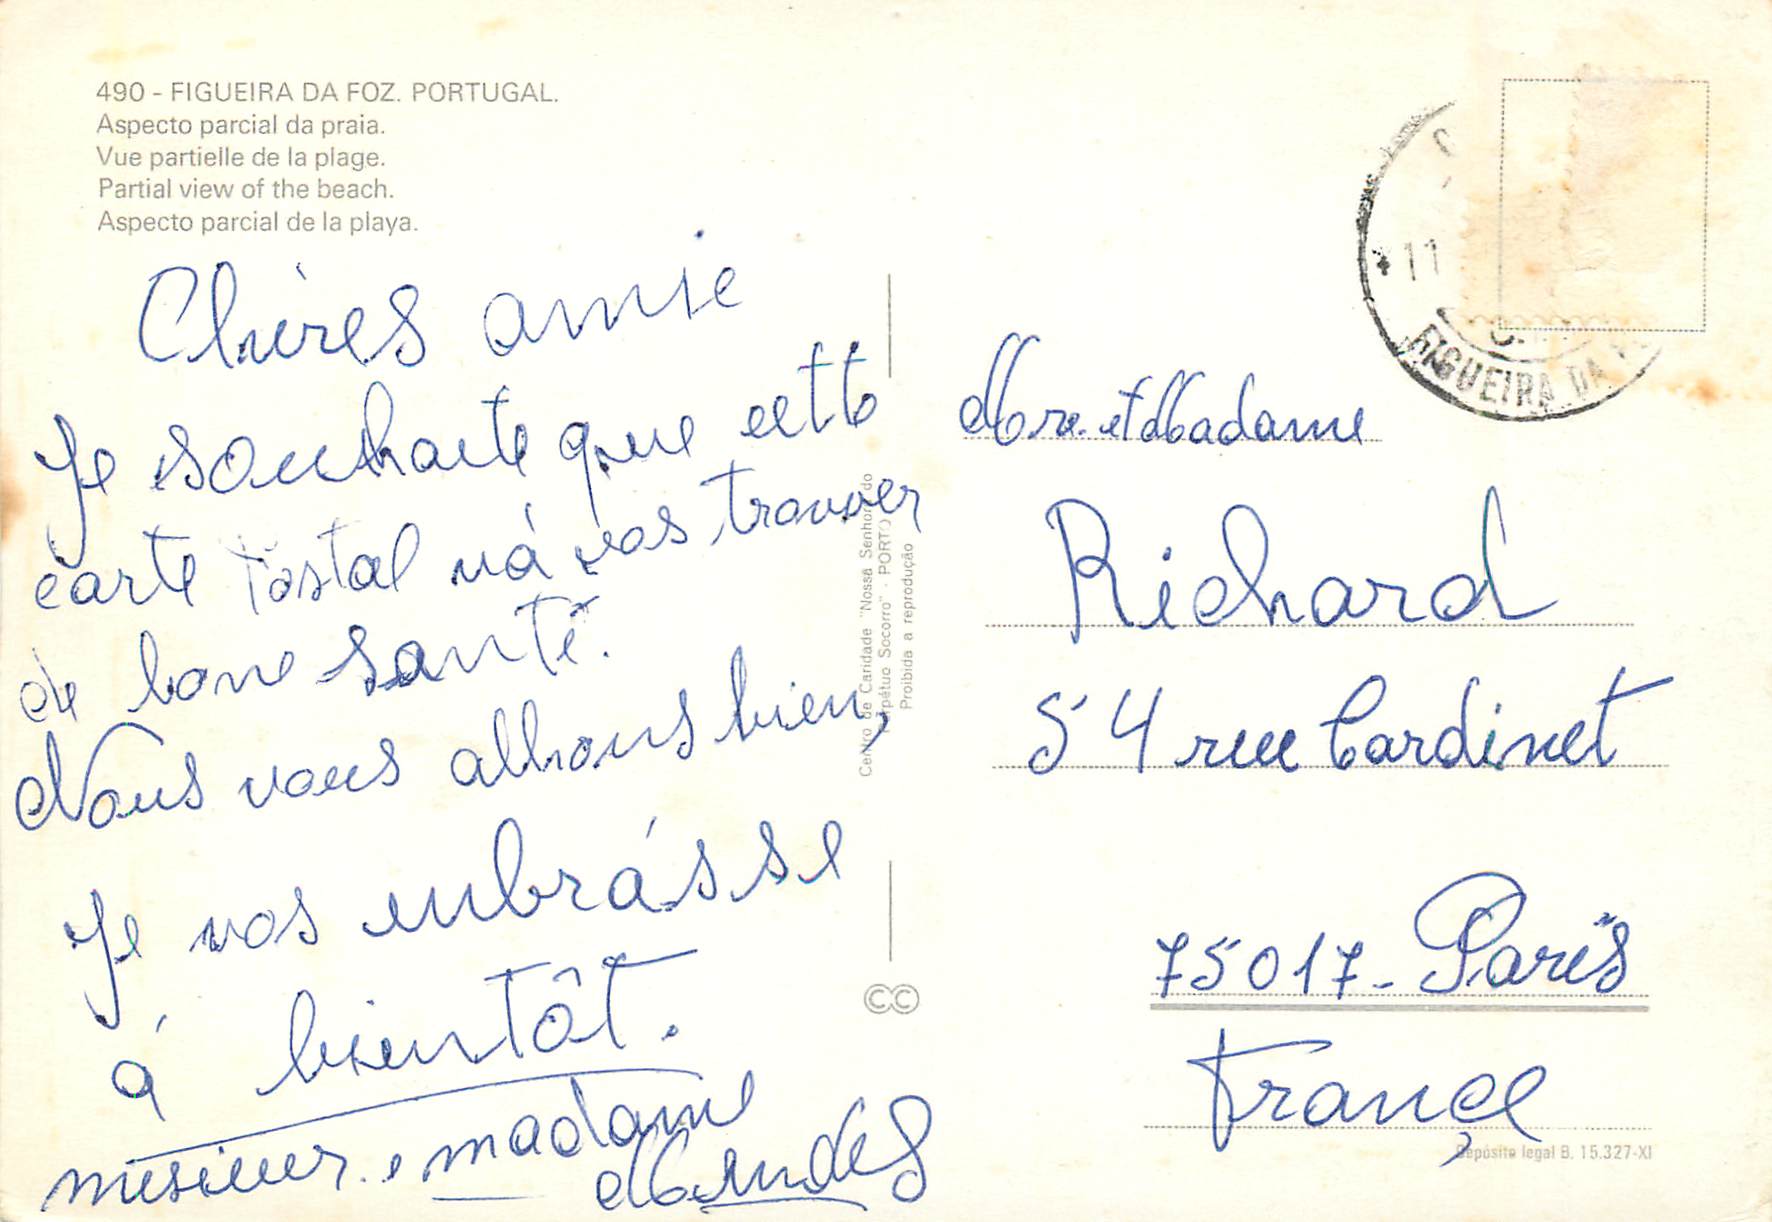 490 - FIGUEIRA DA FOZ. PORTUGAL.
Aspecto parcial da praia.
Vue partielle de la plage.
Partial view of the beach.
Aspecto parcial de la playa.
Chéres amie
Je souhaite que cette
carte Postal vá vos trouver
de bone santé.
Nous vous allhons bien,
Je vos enbrásse
á bientôt.
mesieur. e madame
Mendes
Centro de Caridade "Nossa Senhora do
Perpétuo Socorro" - PORTO
Proibida a reprodução
CC
11
FIGUEIRA DA
Mre. et Madame
Richard
54 rue Cardinet
75017 - Paris
Françe
Depósito legal B. 15.327-XI